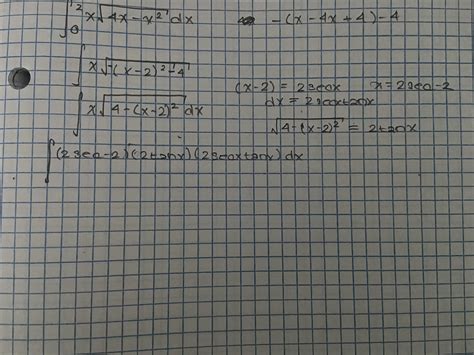 ∫₀² x√(4x - x²) dx   -(x - 4x + 4) - 4
∫ x√(-(x-2)² - 4)
(x-2) = 2secx   x = 2sec - 2
∫ x√(4 - (x-2)²) dx   dx = 2secxtanx
√(4 - (x-2)²) = 2tanx
∫ (2sec - 2)(2tanx)(2secxtanx) dx